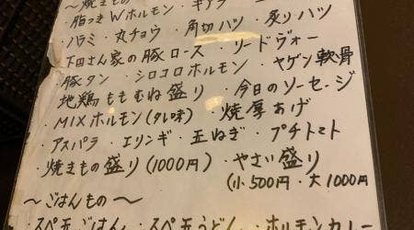 ～焼きもの～
・脂つきWホルモン・ギアラ
・ハラミ・丸チョウ・角切ハツ・炙りハツ
・下田さん家の豚ロース・リードヴォー
・豚タン・シロコロホルモン・ヤゲン軟骨
・地鶏ももむね盛り・今日のソーセージ
・MIXホルモン(タレ味)・焼厚あげ
・アスパラ・エリンギ・玉ねぎ・プチトマト
・焼きもの盛り(1000円)・やさい盛り
(小500円・大1000円
～ごはんもの～
・スペモごはん・スペモうどん・ホルモンカレー